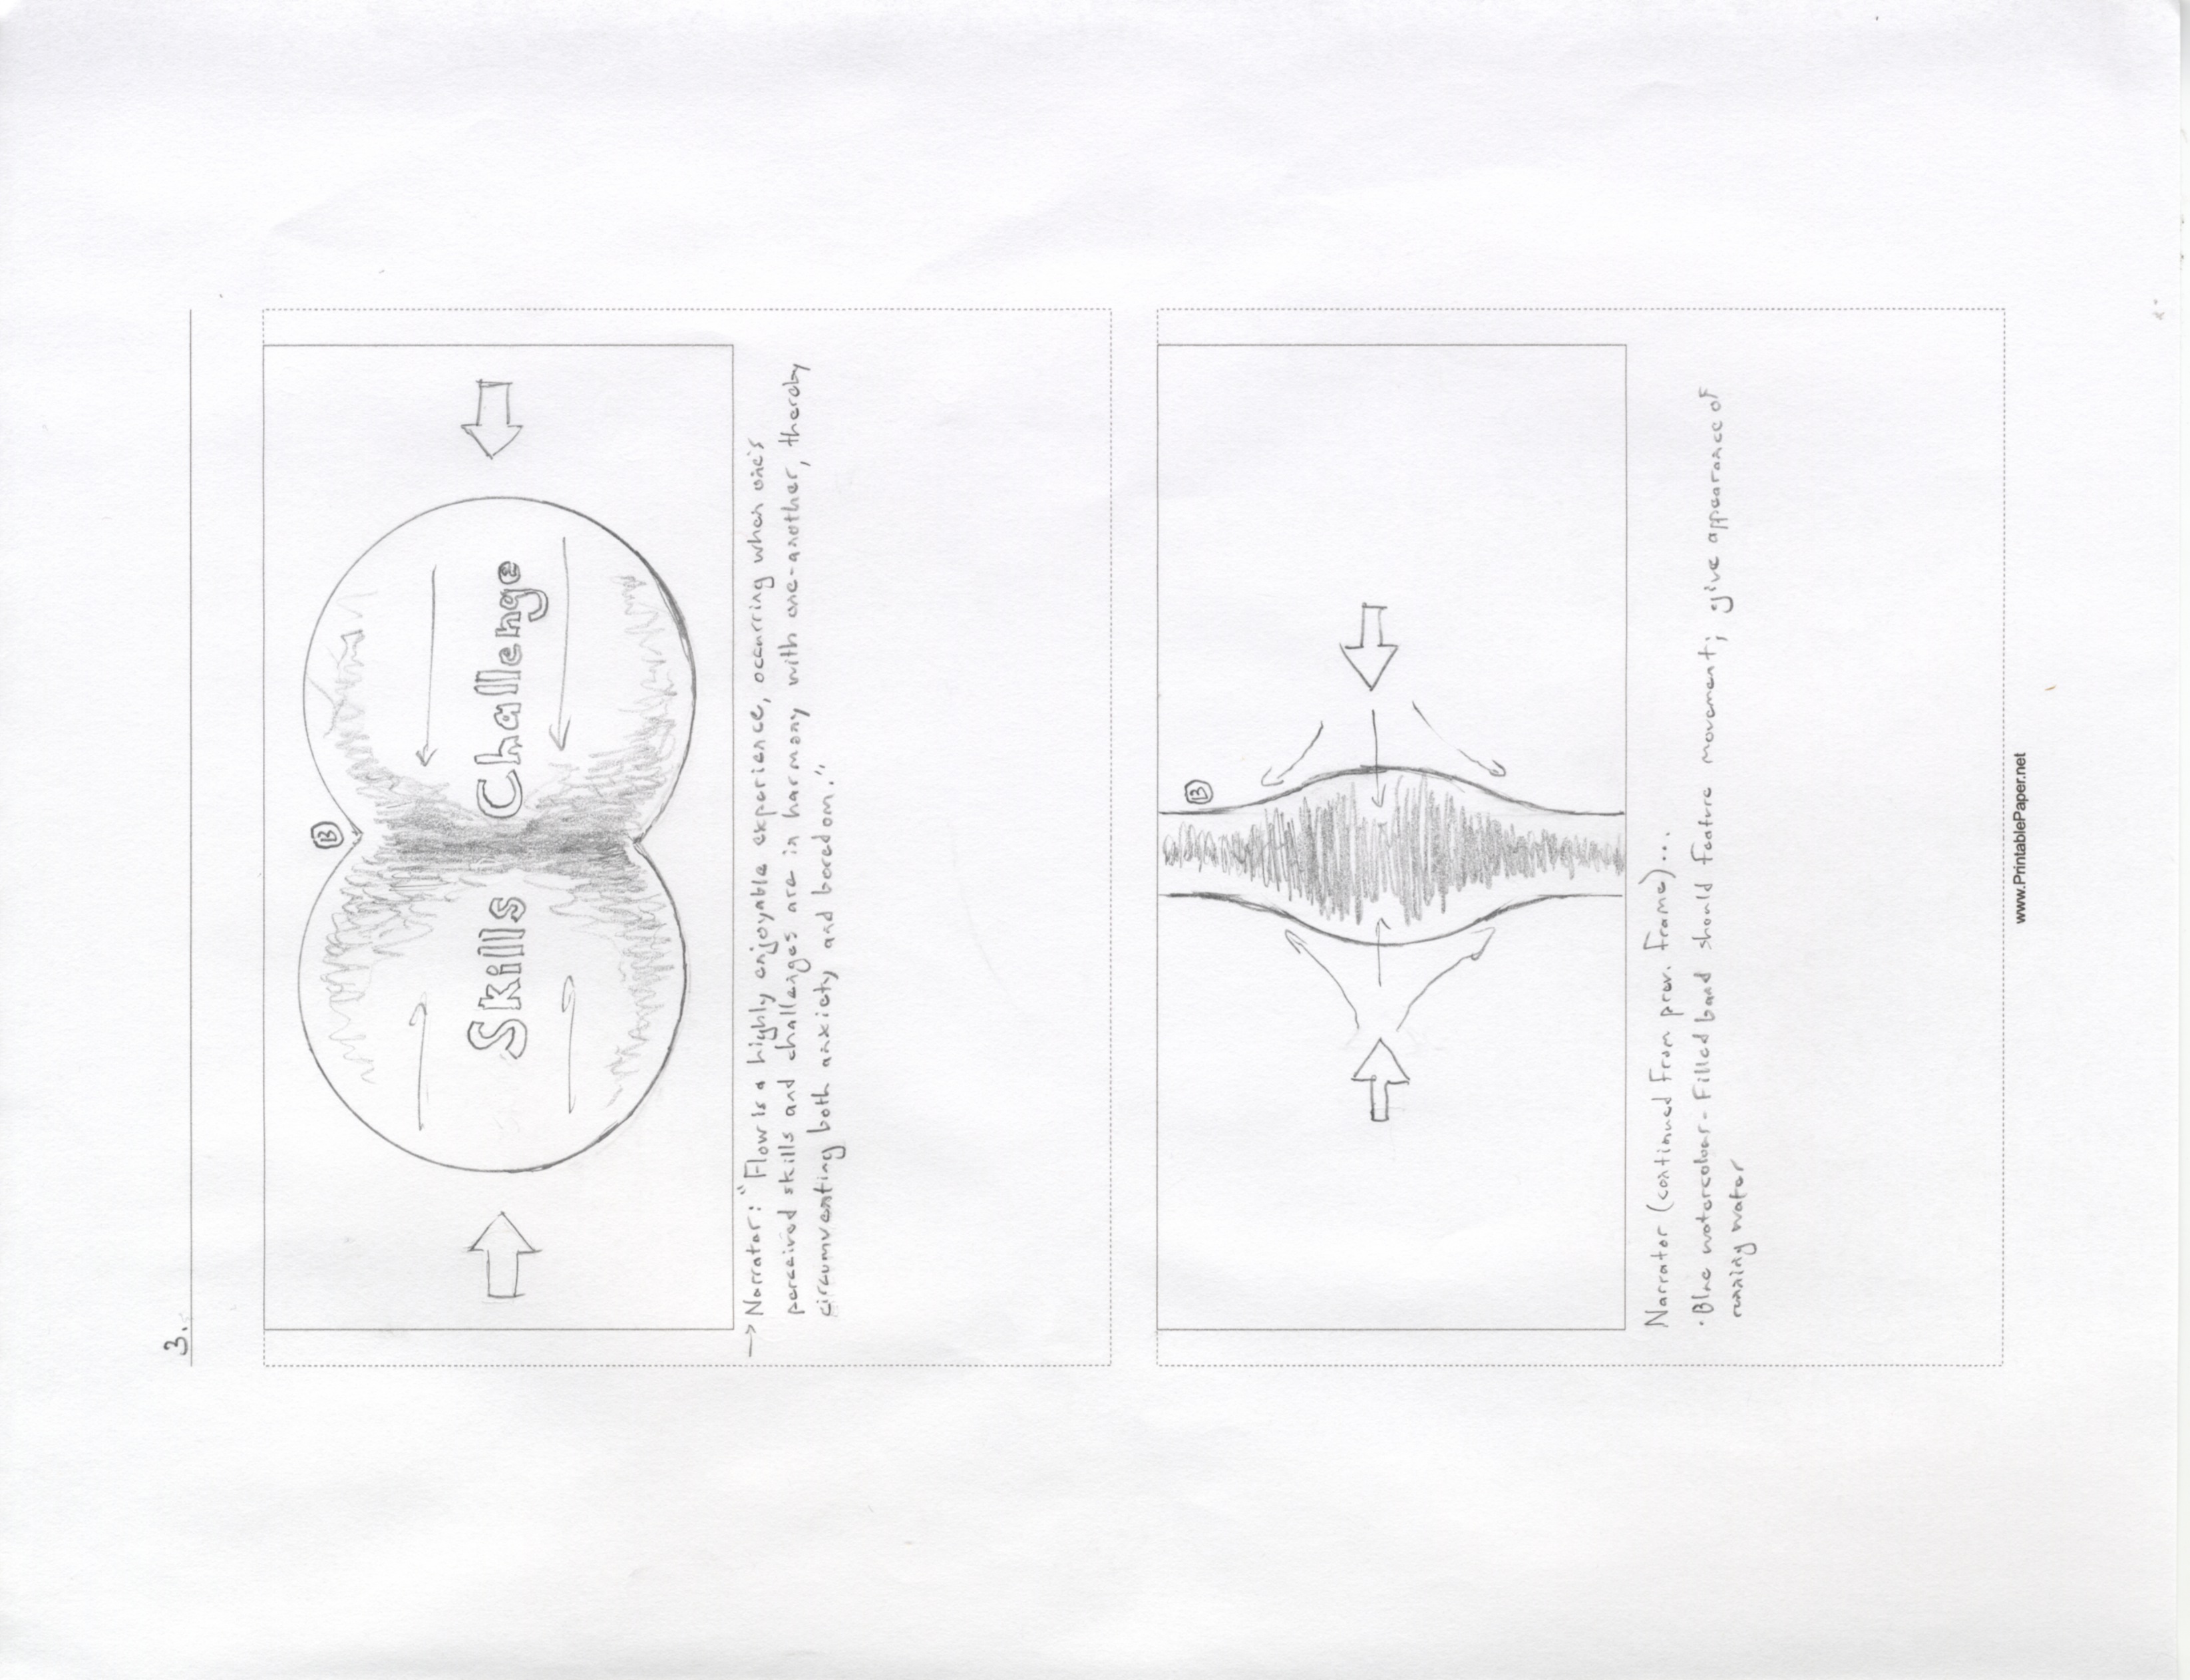 3.
B
Skills
Challenge
→ Narrator: "Flow is a highly enjoyable experience, occurring when one's
perceived skills and challenges are in harmony with one-another, thereby
circumventing both anxiety and boredom."
B
Narrator (continued from prev. frame)...
• Blue watercolour-filled band should feature movement; give appearance of
running water
www.PrintablePaper.net